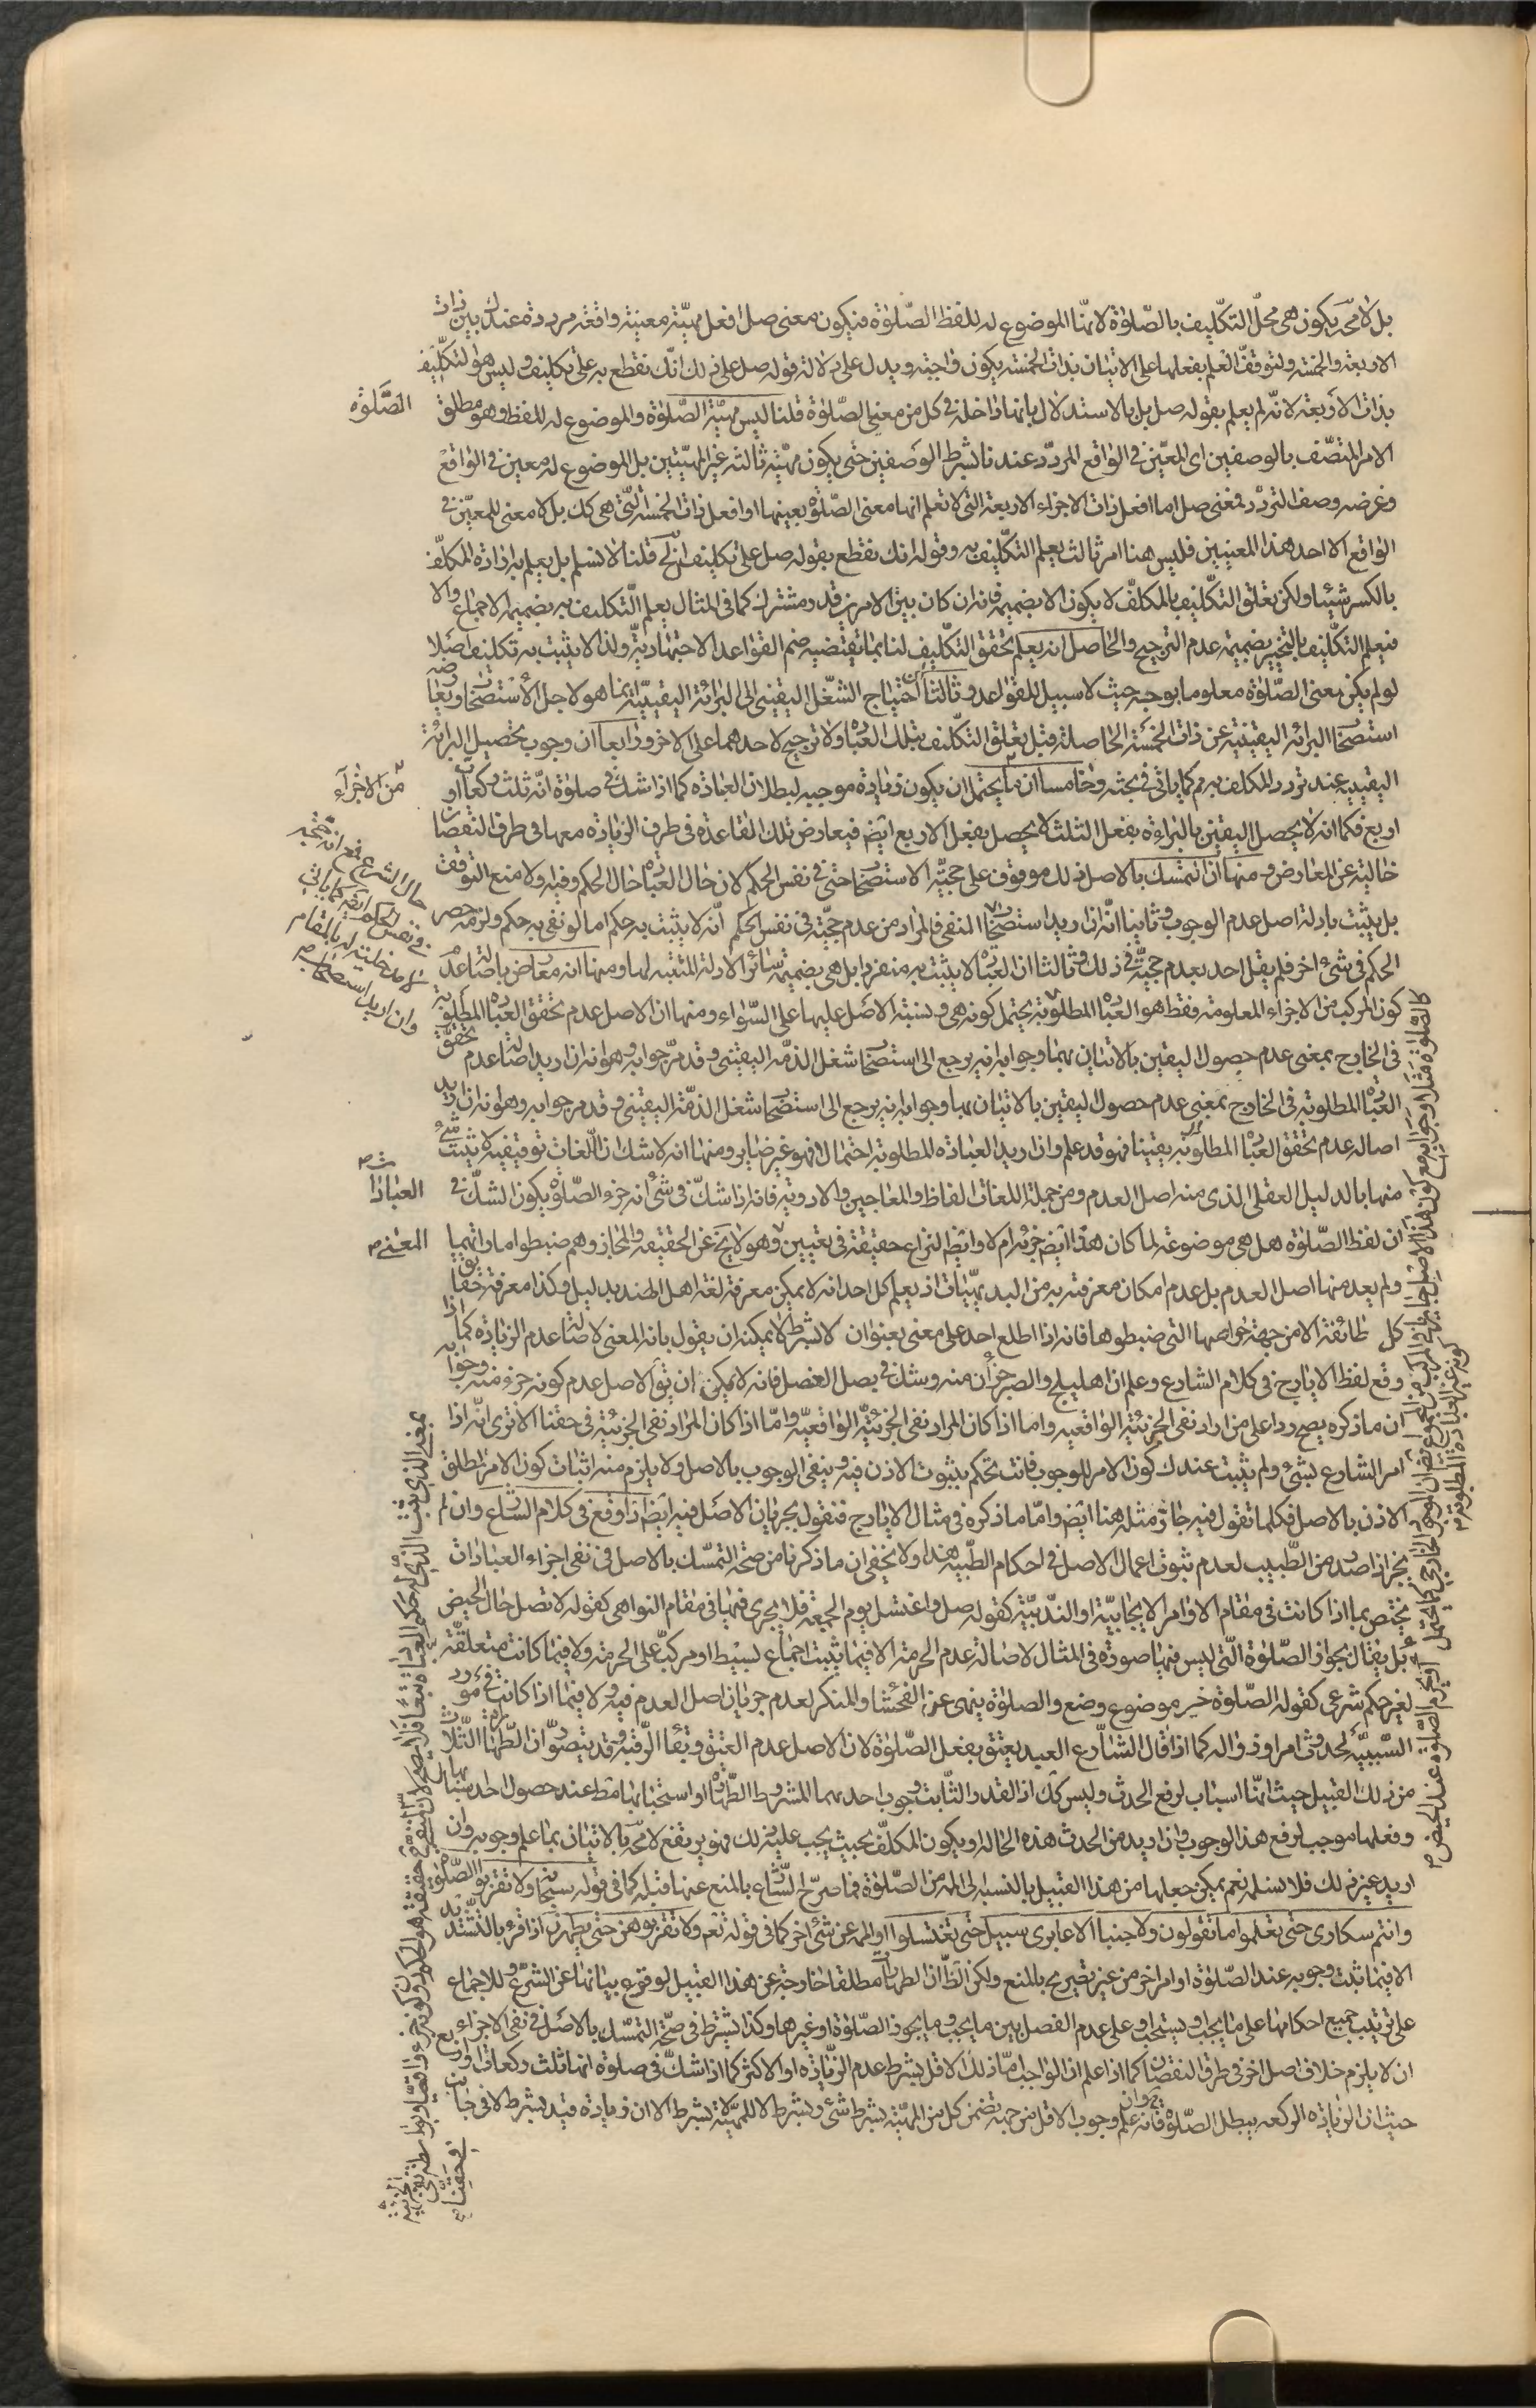 بل لا محة يكون هى محلّ التكليف بالصّلوٰة لانّها الموضوع له للفظ الصّلوٰة فيكون معنى صل افعل مهيّة معينة واقعة مرددة عندك بين ذات
الاربعة والخمسة ولتوقف العلم بفعلها على الاتيان بذات الخمسة يكون واجبة ويدل على دلالة قوله صل على ذلك انّك تقطع به على تكليف وليس هو التكليف
بذات الاربعة لانّه لم يعلم بقوله صل بل بالاستدلال بانها داخلة فى كل من معنى الصّلوٰة قلنا ليس مهيّة الصّلوٰة والموضوع له للفظ وهو مطلق
الامر المتصّف بالوصفين اى المعيّن فى الواقع المردّد عندنا بشرط الوصفين حتى يكون مهيّة ثالثة غير المهيّتين بل الموضوع له معين فى الواقع
وعرضه وصف التردّد فمعنى صل اما افعل ذات الاجزاء الاربعة التى لا تعلم انها معنى الصّلوٰة بعينها او افعل ذات الخمسة التّى هى كك بل لا معنى للمعيّن فى
الواقع الا احد هذا المعنيين فليس هنا امر ثالث يعلم التكليف به وقوله انك تقطع بقوله صل على تكليف الخ قلنا لا نسلم بل يعلم به ارادة المكلّف
بالكسر شيئا ولكن تعلق التكليف بالمكلف لا يكون الا بضميمة فانه ان كان بين الامرين قدر مشترك كما فى المثال يعلم التكليف به بضميمة الاجماع والا
فيعلم التكليف بالتخيير بضميمة عدم الترجيح والحاصل انه يعلم تحقق التكليف لنا بما يقتضيه ضم القواعد الاجتهادية ولذا لا يثبت به تكليف اصلا
لو لم يكن معنى الصّلوٰة معلوما بوجه حيث لا سبيل للقواعد وثالثا احتياج الشغل اليقينى الى البرائة اليقينيّة انما هو لاجل الاستصحاب ويعارضه
استصحاب البرائة اليقينية عن ذات الخمسة الحاصلة قبل تعلق التكليف بتلك العبادة ولا ترجيح لاحدهما على الاخر ورابعا ان وجوب تحصيل البرائة
اليقينية عند تردد المكلف به م كما ياتى فى بحثه وخامسا ان ما يحتمل ان يكون زيادة موجبه لبطلان العبادة كما اذا شك فى صلوة انّه ثلث ركعات او
اربع فكما انه لا يحصل اليقين بالبراءة بفعل الثلثة لا يحصل بفعل الاربع ايضا فيعارض تلك القاعدة فى طرف الزيادة معها فى طرف النقصان
خالية عن المعارض ومنها ان التمسك بالاصل فى ذلك موقوف على حجيّة الاستصحاب حتى فى نفس الحكم لان حال العبادة حال الحكم وفيه ولا منع التوقف
بل يثبت بادلة اصل عدم الوجوب وثانيا انّه ان اريد استصحاب المنفى فالمراد من عدم حجيّة فى نفس الحكم انّه لا يثبت به حكم اما لو نفى به حكم ولزمه حصر
الحكم فى شئ اخر فلم يقل احد بعدم حجيّة فى ذلك وثالثا ان العبادة لا يثبت به منفردا بل هى بضميمة سائر الادلة المثبتة لها ومنها انه معارض باصالة عدم
كون المركب من الاجزاء المعلومة فقط هو العبادة المطلوبة يحتمل كونه هى ونسبة الاصل عليها على السّواء ومنها ان الاصل عدم تحقق العبادة المطلوبة
فى الخارج بمعنى عدم حصول اليقين بالاتيان بها وجوابه انه يرجع الى استصحاب شغل الذمّة اليقينى وقد مرّ جوابه وهو انه ان اريد اصالة عدم تحقق
العبادة المطلوبة فى الخارج بمعنى عدم حصول اليقين بالاتيان بها وجوابه انه يرجع الى استصحاب شغل الذمّة اليقينى وقد مر جوابه وهو انه ان اريد
اصالة عدم تحقق العبادة المطلوبة يقينا فهو قد علم وان اريد العبادة المطلوبة احتمالا فهو غير ضاير ومنها انه لا شك ان اللّغات توقيفية لا يثبت شئ
منها بالدليل العقلى الذى منه اصل العدم ومن جملة اللغات الفاظ والمعاجين والادوية فانه اذا شكّ فى شئ انه جزء الصّلوٰة يكون الشكّ فى
ان لفظ الصّلوٰة هل هى موضوعة لما كان هذا ايضا جزئه ام لا وايضا النزاع حقيقة فى تعيين وهو لا يخ عن الحقيقة والمجاز وهم ضبطوا اماراتهما
ولم يعد منها اصل العدم بل عدم امكان معرفته به من البديهيّات اذ يعلم كل احد انه لا يمكن معرفة لغة اهل الهند بدليل وكذا معرفة حقايق
كل طائفة الا من جهة خواصهما التى ضبطوها فانه اذا اطلع احد على معنى بعنوان لا بشرط لا يمكنه ان يقول بانه المعنى لاصالة عدم الزيادة كما اذا
وقع لفظ الايارج فى كلام الشارع وعلم ان اهليلج والصبر جزأن منه وشك فى بصل العنصل فانه لا يمكن ان يقوٰل الاصل عدم كونه جزء منه وجوابه
ان ما ذكره يصح ردا على من اراد نفى الجزئيّة الواقعيه واما اذا كان المراد نفى الجزئيّة الواقعيّة وامّا اذا كان المراد نفى الجزئيّة فى حقنا الا ترى انّه اذا
امر الشارع بشئ ولم يثبت عندك كون الامر للوجوب فانت تحكم بثبوت الاذن فيه وينفى الوجوب بالاصل ولا يلزم منه اثبات كون الامر المطلق
الاذن بالاصل فكلما تقول فيه جاز مثله هنا ايضا وامّا ما ذكره فى مثال الايارج فنقول بجريان الاصل فيه ايضا اذا وقع فى كلام الشّارع وان لم
يجز اذا صدر من الطّبيب لعدم ثبوت اعمال الاصل فى احكام الطّبيّه هذا ولا يخفى ان ما ذكرنا من صحّة التمسّك بالاصل فى نفى اجزاء العبادات
يختص بما اذا كانت فى مقام الاوامر الايجابيّة او النّدبيّة كقوله صل واغتسل يوم الجمعة فلا يجرى فيها فى مقام النواهى كقوله لا تصل حال الحيض
بل يقال بجواز الصّلوٰة التّى ليس فيها صورة فى المثال لاصالة عدم الحرمة الا فيما يثبت اجماع بسيط او مركب على الحرمة ولا فيما كانت متعلقة
لغير حكم شرعى كقوله الصّلوٰة خير موضوع وضع والصلوٰة ينهى عن الفحشاء والمنكر لعدم جريان اصل العدم فيه ولا فيما اذا كانت فى مورد
السّببيّة لحدوث امر او زواله كما اذا قال الشّارع العبد يعتق بفعل الصّلوٰة لان الاصل عدم العتق وبقاء الرّقيّة وقد يتصوّر ان الطّهارات الثّلاث
من ذلك القبيل حيث انّها اسباب لرفع الحدث وليس كك اذ القدر الثّابت وجوب احدهما المشروط الطّهارة او استحبابها مط عند حصول احد اسبابها
وفعلها موجب لرفع هذا الوجوب فان اريد من الحدث هذه الحالة ويكون المكلّف بحيث يجب عليه ذلك فهو يرتفع لا محة بالاتيان بما علم وجوبه وان
اريد غير ذلك فلا نسلمه نعم يمكن جعلها من هذا القبيل بالنسبة الى المه من الصّلوٰة فما صرّح الشّارع بالمنع عنها قبله كما فى قوله سبحانه ولا تقربوا الصّلوٰة
وانتم سكارى حتى تعلموا ما تقولون ولا جنبا الا عابرى سبيل حتى تغتسلوا او المه عن شئ اخر كما فى قوله تعم ولا تقربوهن حتى يطهرن اذا قرء بالتشديد
الا فيما ثبت وجوبه عند الصّلوٰة او امر اخر من غير تصريح بالمنع ولكن الظّ ان الطهارات مطلقا خارجة عن هذا القبيل لوقوع بيانها عن الشّرع وللاجماع
على ترتيب جميع احكامها على ما يجب او يستحب او على عدم الفصل بين ما يجب وما يجوز الصّلوٰة او غيرها وكذا يشترط فى صحّة التمسّك بالاصل فى نفى الاجزاء
ان لا يلزم خلاف اصل اخر فى طرف النقصان كما اذا علم ان الواجب امّا ذلك الاقل بشرط عدم الزّيادة او الاكثر كما اذا شكّ فى صلوة انها ثلث ركعات او اربع
حيث ان الزيادة الركعه يبطل الصّلوٰة فانه وان علم وجوب الاقل من جهة تضمن كل من المهيّة بشرط شئ وبشرط لا للمهيّة لا بشرط الا ان زيادة قيد بشرط لا فى جانب
الصّلوٰة
من الاجزاء
العبادات
المعنى